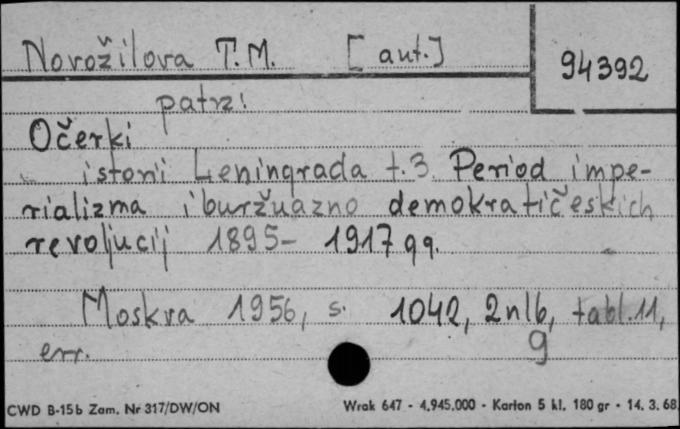 Novožilova T.M. [aut.]
94392
patrz:
Očerki
istorii Leningrada t.3. Period impe-
rializma i buržuazno demokratičeskich
revoljucij 1895- 1917 gg.
Moskva 1956, s. 1042, 2nlb, tabl.11,
err. g
CWD B-15b Zam. Nr 317/DW/ON Wrak 647 - 4.945.000 - Karton 5 kl. 180 gr - 14. 3. 68.